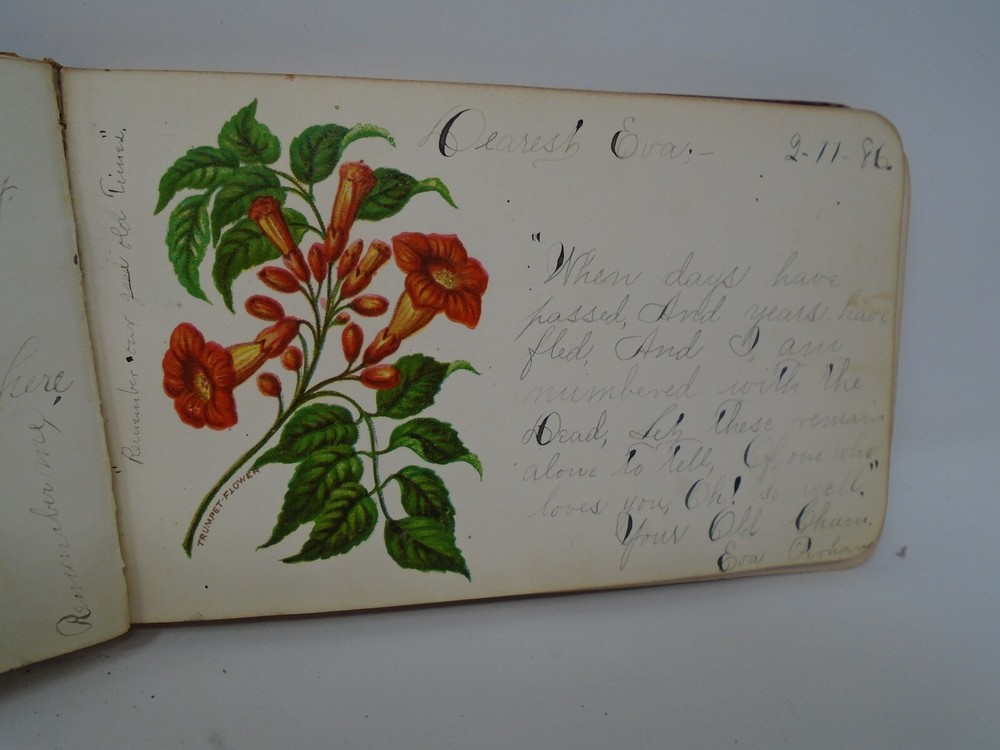 Dearest Eva:-
2-11-86.
"When days have
passed, And years have
fled, And I, am
numbered with the
Dead, Let these remain
alone to tell, Of one who
loves you, Oh! so well."
Your Old Chum.
Eva
"Remember our good old Times".
TRUMPET-FLOWER
here
Remember me,